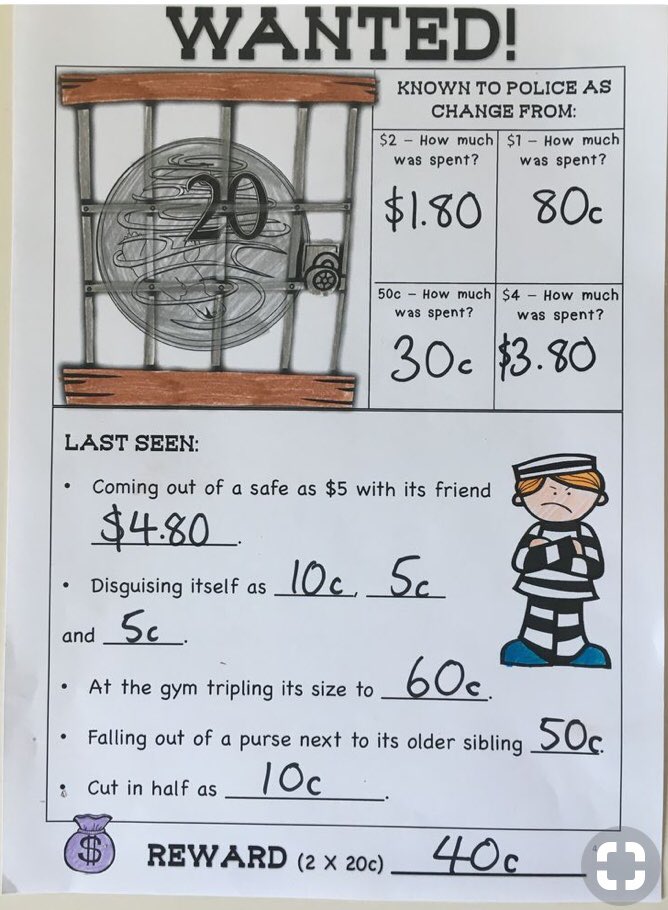 WANTED!
20
KNOWN TO POLICE AS
CHANGE FROM:
$2 - How much
was spent?
$1.80
$1 - How much
was spent?
80c
50c - How much
was spent?
30c
$4 - How much
was spent?
$3.80
LAST SEEN:
• Coming out of a safe as $5 with its friend
$4.80.
• Disguising itself as 10c, 5c
and 5c.
• At the gym tripling its size to 60c.
• Falling out of a purse next to its older sibling 50c.
• Cut in half as 10c.
$
REWARD (2 X 20c) 40c